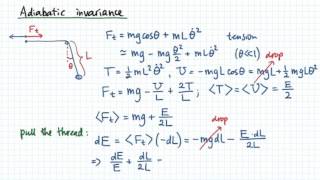 Adiabatic invariance
F_t = mg cosθ + mL θ̇² tension
≃ mg - mg θ²/2 + mL θ̇² (θ≪1) drop
T = 1/2 mL² θ̇², U = -mgL cosθ = mgL + 1/2 mgLθ²
F_t = mg - U/L + 2T/L ; <T> = <U> = E/2
<F_t> = mg + E/2L
pull the thread : drop
dE = <F_t>(-dL) = -mgdL - E·dL/2L
⇒ dE/E + dL/2L =
F_t
L
θ